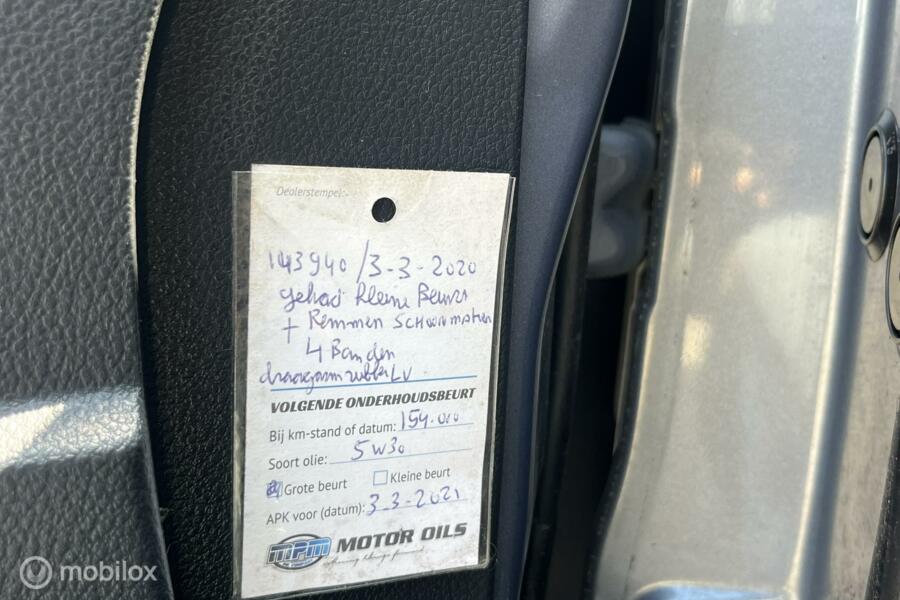 Dealerstempel:
143940 / 3-3-2020
gehad kleine Beurt
+ Remmen SCHOONmaken
4 Banden
draagarm rubber LV
VOLGENDE ONDERHOUDSBEURT
Bij km-stand of datum: 154.000
Soort olie: 5W30
Grote beurt Kleine beurt
APK voor (datum): 3-3-2021
mpm MOTOR OILS
mobilox